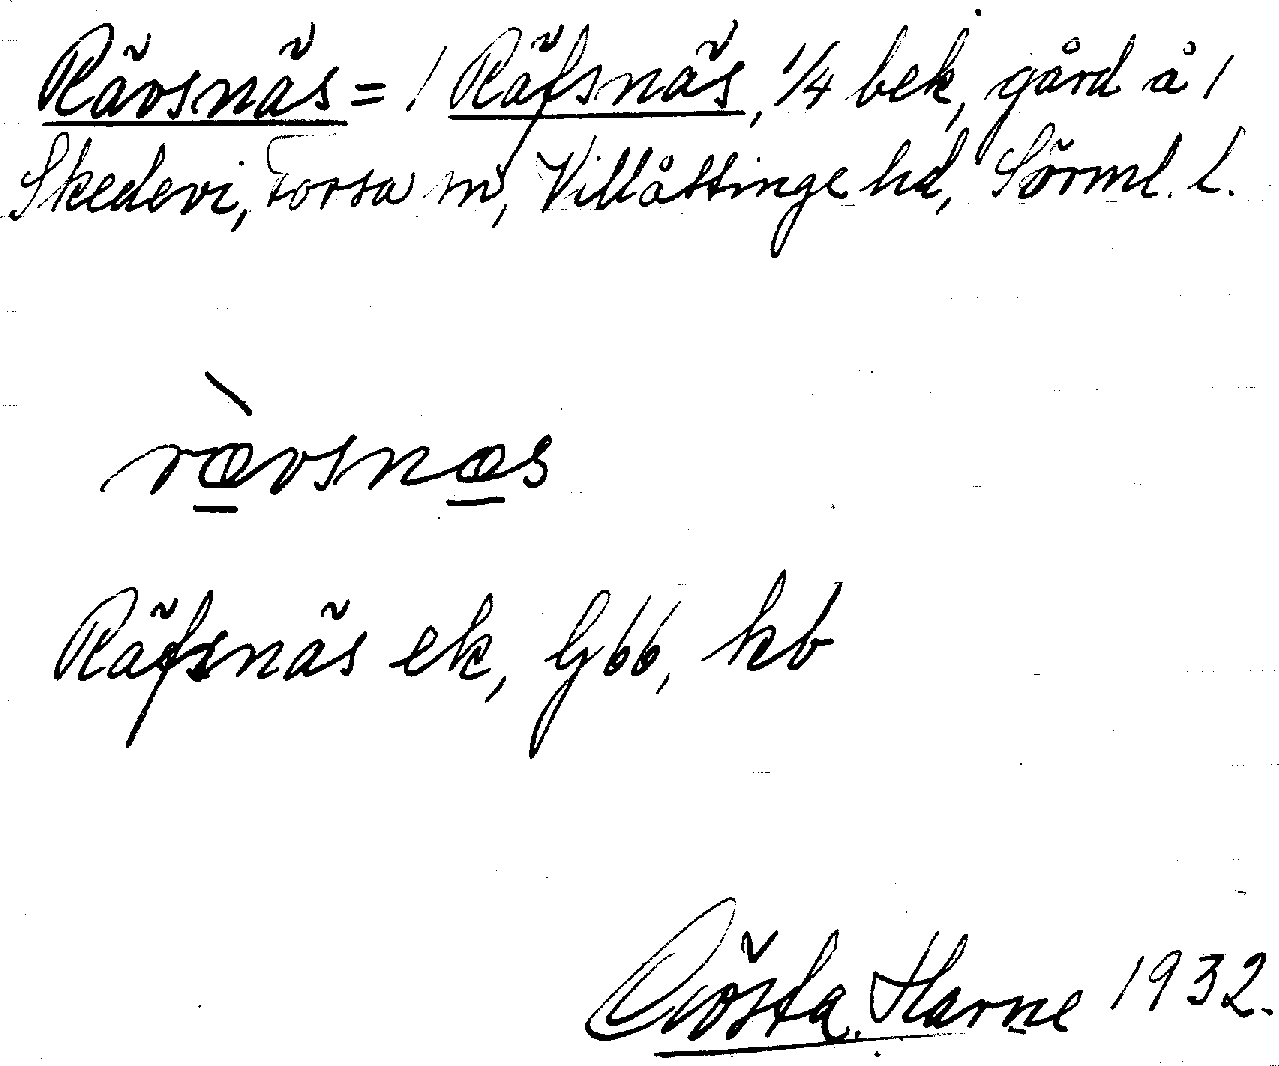 Rävsnäs = 1 Räfsnäs, 1/4 bek, gård å 1
Skedevi, Torsa sn, Villåttinge hd, Sörml. l.
rævsnæs
Räfsnäs ek, G66, kb
Gösta Harne 1932.